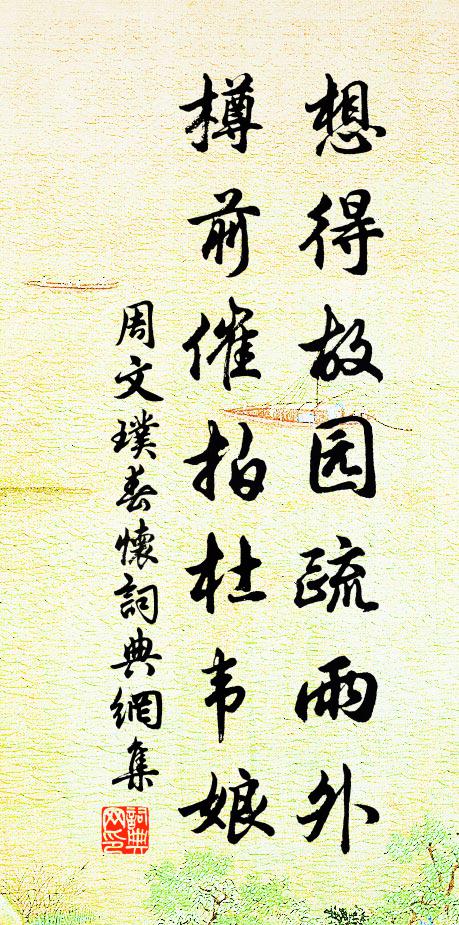 想得故园疏雨外
樽前催拍杜韦娘
周文璞春懷詞典網集
詞典网印